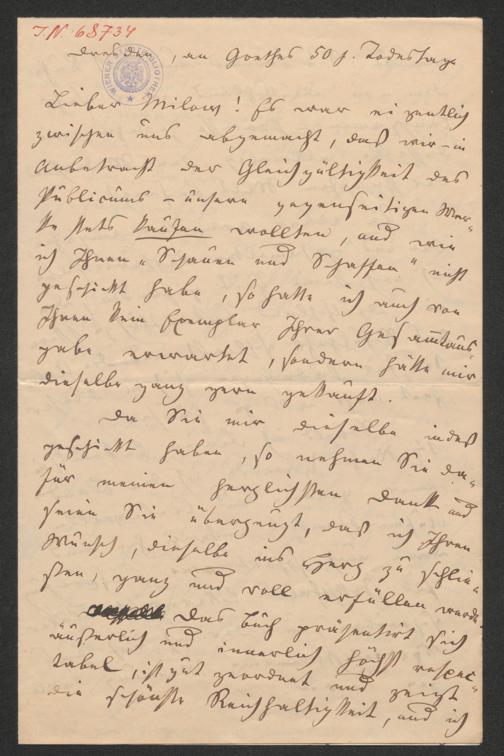 I.N. 68734
WIENER STADTBIBLIOTHEK
Dresden, an Goethes 50 j. Todestage
Lieber Milow! Es war eigentlich
zwischen uns abgemacht, daß wir – in
Anbetracht der Gleichgültigkeit des
Publicums – unsere gegenseitigen Wer-
ke stets kaufen wollten, und wie
ich Ihnen „Schauen und Schaffen" nicht
geschickt habe, so hatte ich auch von
Ihnen kein Exemplar Ihrer Gesammtaus-
gabe erwartet, sondern hätte mir
dieselbe ganz gern gekauft.
Da Sie mir dieselbe indeß
geschickt haben, so nehmen Sie da-
für meinen herzlichsten Dank und
seien Sie überzeugt, daß ich Ihren
Wunsch, dieselbe ins Herz zu schlie-
ßen, ganz und voll erfüllen werde.
Das Buch präsentirt sich
äußerlich und innerlich höchst respec-
tabel, ist gut geordnet und zeigt
die schönste Reichhaltigkeit, und ich